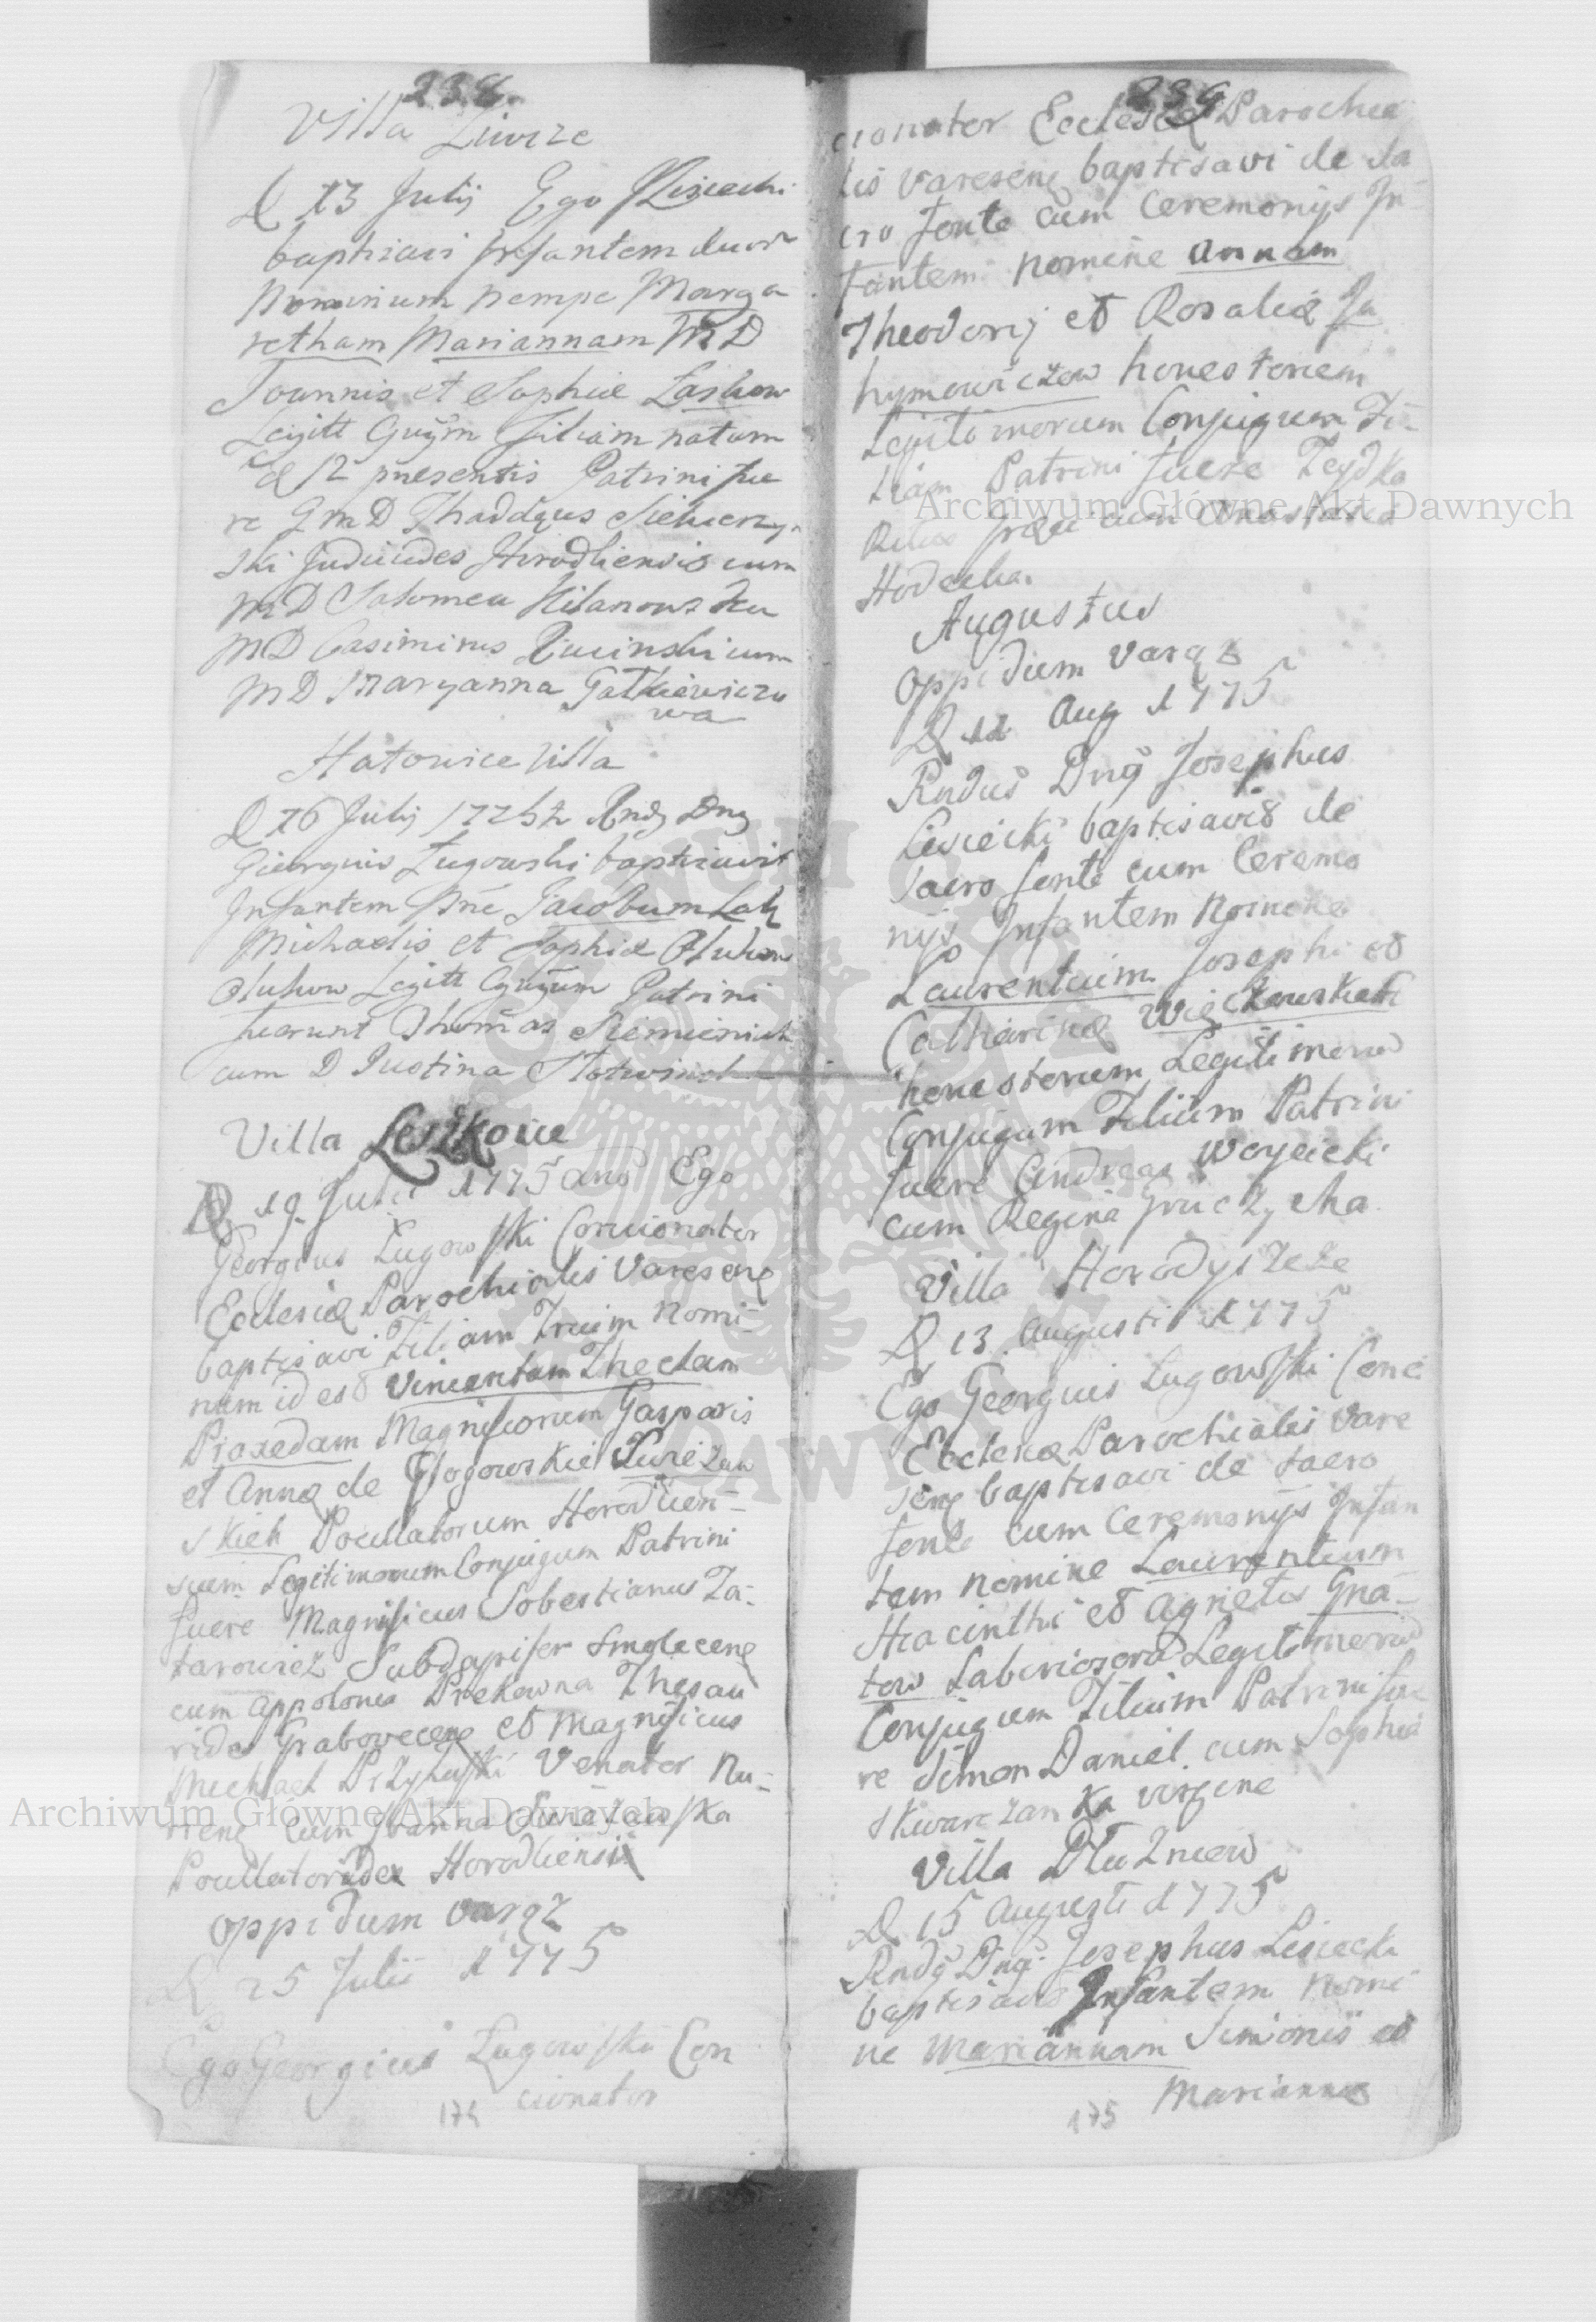 238.
Villa Liwcze
D 13 Julij Ego J Lisiecki
baptizavi Infantem duor
Nominum nempe Marga
retham Mariannam M D
Joannis et Sophiæ Laskow
Legitt Filiam natam
d 12 presentis Patrini fue
re G m D Thaddęus Siekierzy
ski Judicides Horodliensis cum
M D Salomea Kilanowska
M D Casimirus cum
M D Maryanna Gatkiewiczo
wa
Hatowice Villa
D 16 Julij 1775 Dng
Giorgius Lugowski baptizavit
Infantem Jacobum
Michaelis et Sophiæ
Olukow Legitt Patrini
fuerunt Thomas
cum D Justina
Villa Leszkowice
D 19 Julii 1775 Ano Ego
Georgius Lugowski Concionator
Ecclesiæ Parochialis Varesenę
baptisavi Filiam Trium Nomi-
num id est Vincentam Theclam
Praxedam Magnificorum Gasparis
et Annę de Głogowskie Swieżaw
skich Pocillatorum Horodlien-
sium Legitimorum Conjugum Patrini
fuere Magnificus Sobestianus Za-
tarowicz Subdapifer Smolecenę
cum Appolonia Thesau
rides Grabowecenę et Magnificus
Michael Przyłuski Venator Nu-
rrenę cum Joanna Swieżawska
Pocillatorides Horodliensis
Oppidum Varęż
D 25 Julii 1775
Ego Georgius Lugowski Con
cionator
174
239
cionator Ecclesiæ Parochia
lis Varesenę baptisavi de Sa
cro fonte cum Ceremonijs In-
fantem Nomine Annam
Theodorij et Rosaliæ Ja
hymowiczow honestorum
Legitimorum Conjugum Fi-
liam Patrini fuere
cum Anastasia
Hodecka.
Augustus
Oppidum Varęż
D 11 Aug 1775
Rndus Dng Josephus
Lisiecki baptisavit de
Sacro fonte cum Ceremo
nijs Infantem Nomine
Laurentium Josephi et
Catharinę Więckowskich
honestorum Legitimoru
Conjugum Filium Patrini
fuere Andreas Woycicki
cum Regina Gruczycha
Villa Horodyszcze
D 13 Augusti 1775
Ego Georgius Lugowski Conc
Ecclesiæ Parochialis Vare
senę baptisavi de Sacro
fonte cum Ceremonijs Infan
tem Nomine Laurentium
Hiacinthi et Agnetis Gna-
tow Laboriosoru Legitimoru
Conjugum Filium Patrini fue
re Simon Daniel cum Sophia
Skwarczanka virgine
Villa Dłużniow
D 15 Augusti 1775
Rndg Dng Josephus Lisiecki
baptisavit Infantem Nomi
ne Mariannam Simonis et
Mariannę
175
Archiwum Główne Akt Dawnych
Archiwum Główne Akt Dawnych